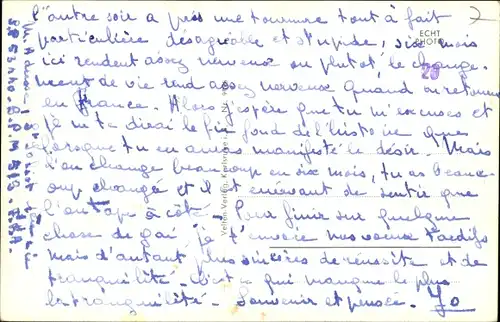 l'autre soir a pris une tournure tout à fait
particulière désagréable et stupide, six mois
ici rendent assez nerveux ou plutôt le change-
ment de vie rend assez nerveux quand on retourne
en France. Alors j'espère que tu m'excuses et
je ne te dirai le fin fond de l'histoire que
lorsque tu en auras manifesté le désir. Mais
l'on change beaucoup en six mois, tu as beauc-
oup changé et il est énervant de sentir que
l'on tape à côté! Pour finir sur quelque
chose de gai, je t'envoie mes voeux tardifs
mais d'autant plus sincères de réussite et de
tranquilité. C'est ce qui manque le plus
la tranquilité. Souvenir et pensée. Yo
ECHT
PHOTO
26
SP 53.400. B.P.M